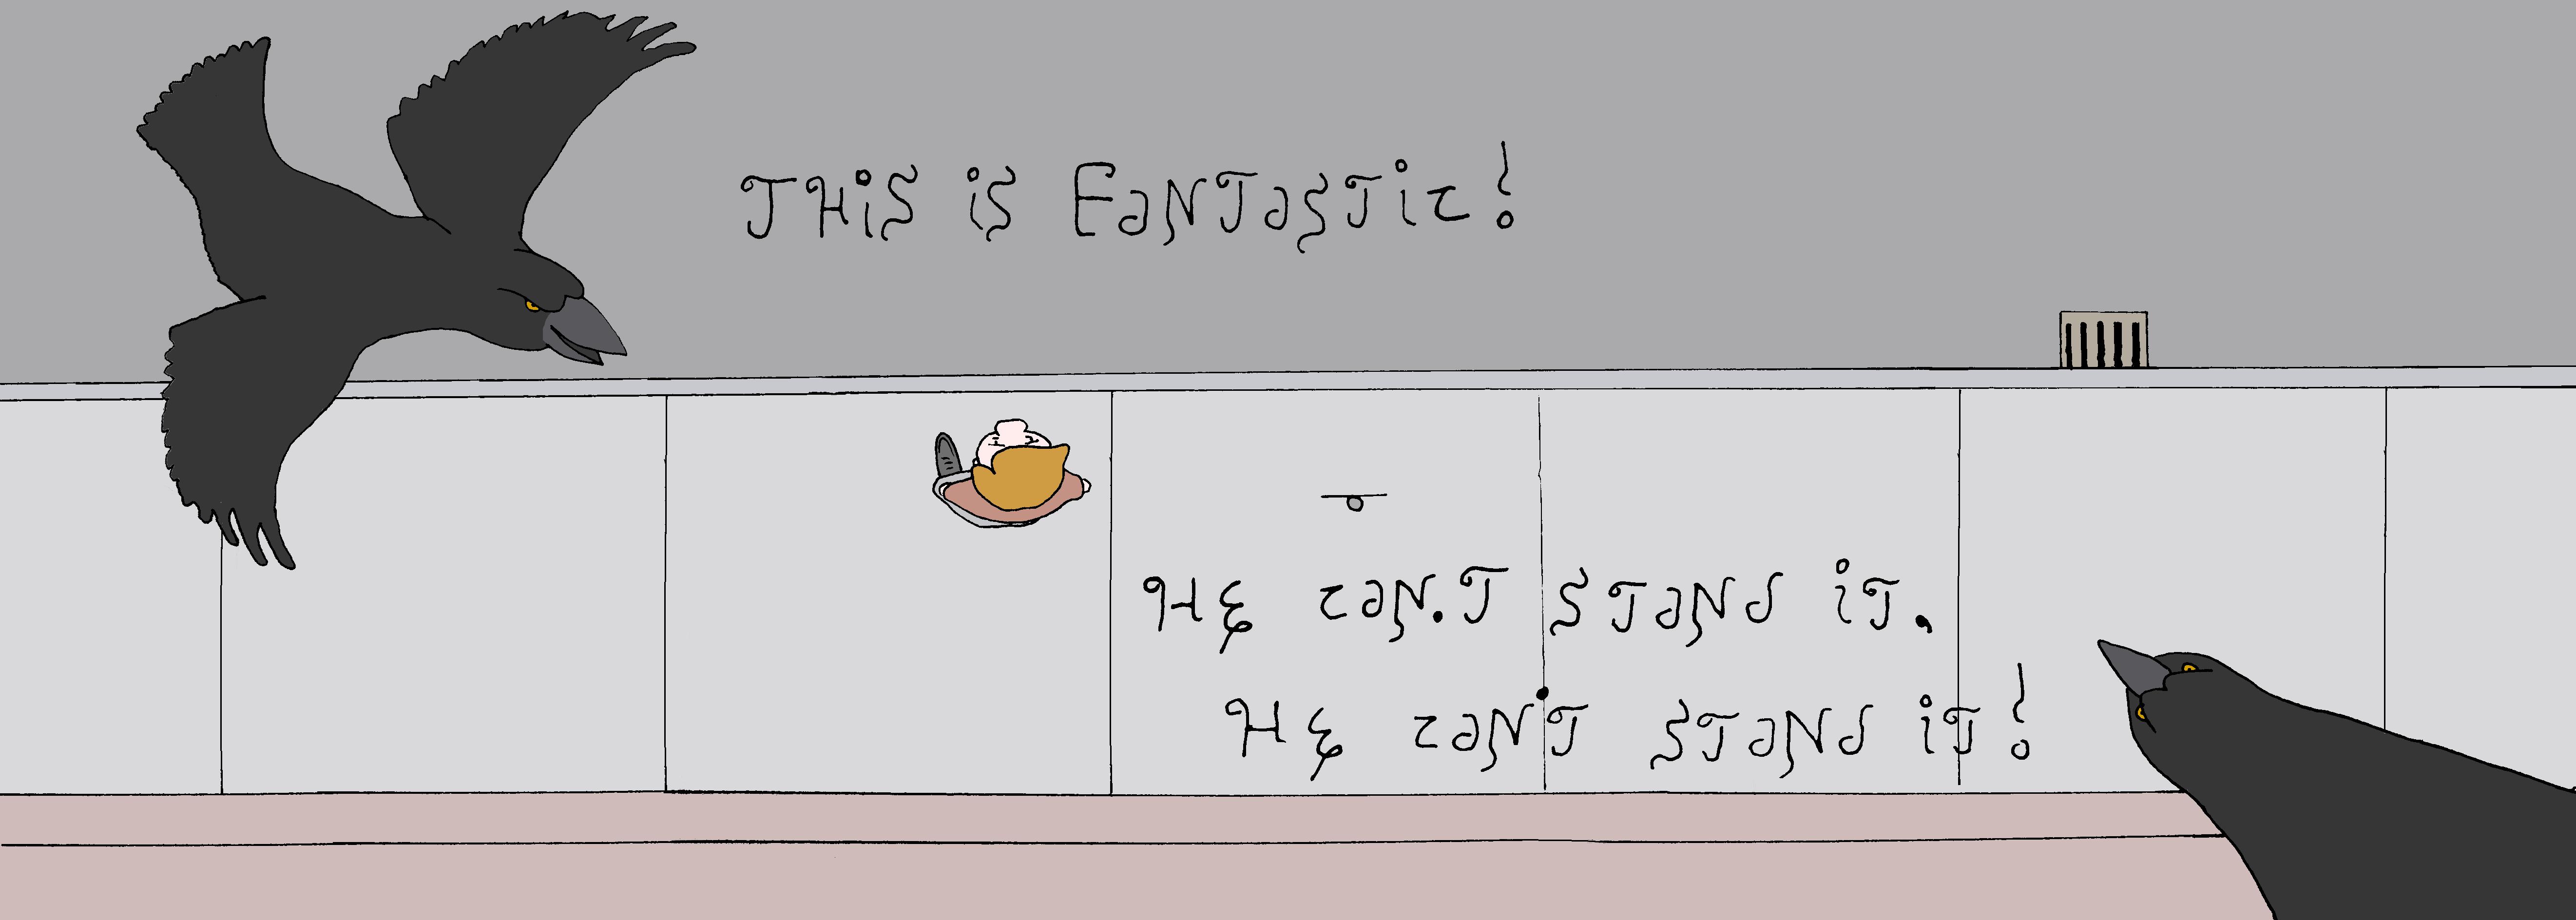 THiS iS FaNTaSTic!
HE caN.T STaNd iT.
HE caN'T STaNd iT!